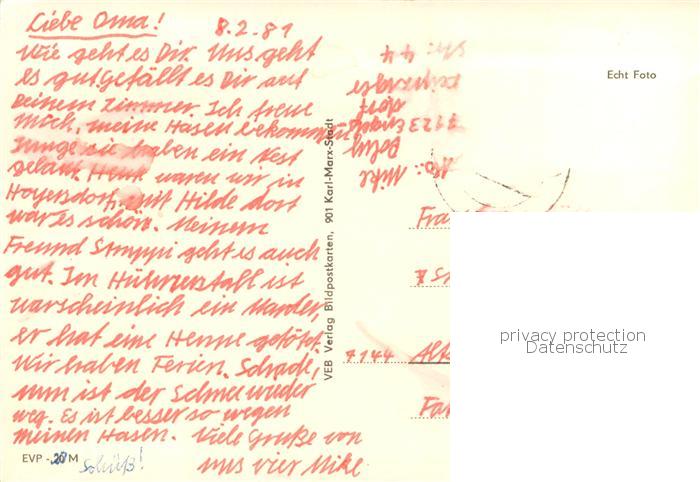 Liebe Oma! 8.2.81
Wie geht es Dir. Uns geht
es gut. Gefällt es Dir auf
Deinem Zimmer. Ich freue
mich, meine Hasen bekommen
Junge sie haben ein Nest
gebaut. Heute waren wir in
Hoyersdorf mit Hilde dort
war es schön. Meinem
Freund Struppi geht es auch
gut. Im Hühnerstall ist
warscheinlich ein Marder,
er hat eine Henne getötet.
Wir haben Ferien. Schade,
nun ist der Schnee wieder
weg. Es ist besser so wegen
meinen Hasen. Viele Grüße von
uns vier Mike
EVP - 20 M
VEB Verlag Bildpostkarten, 901 Karl-Marx-Stadt
Echt Foto
Ab: Mike
7123
dorf
Str: 44
Fra
7144
privacy protection
Datenschutz